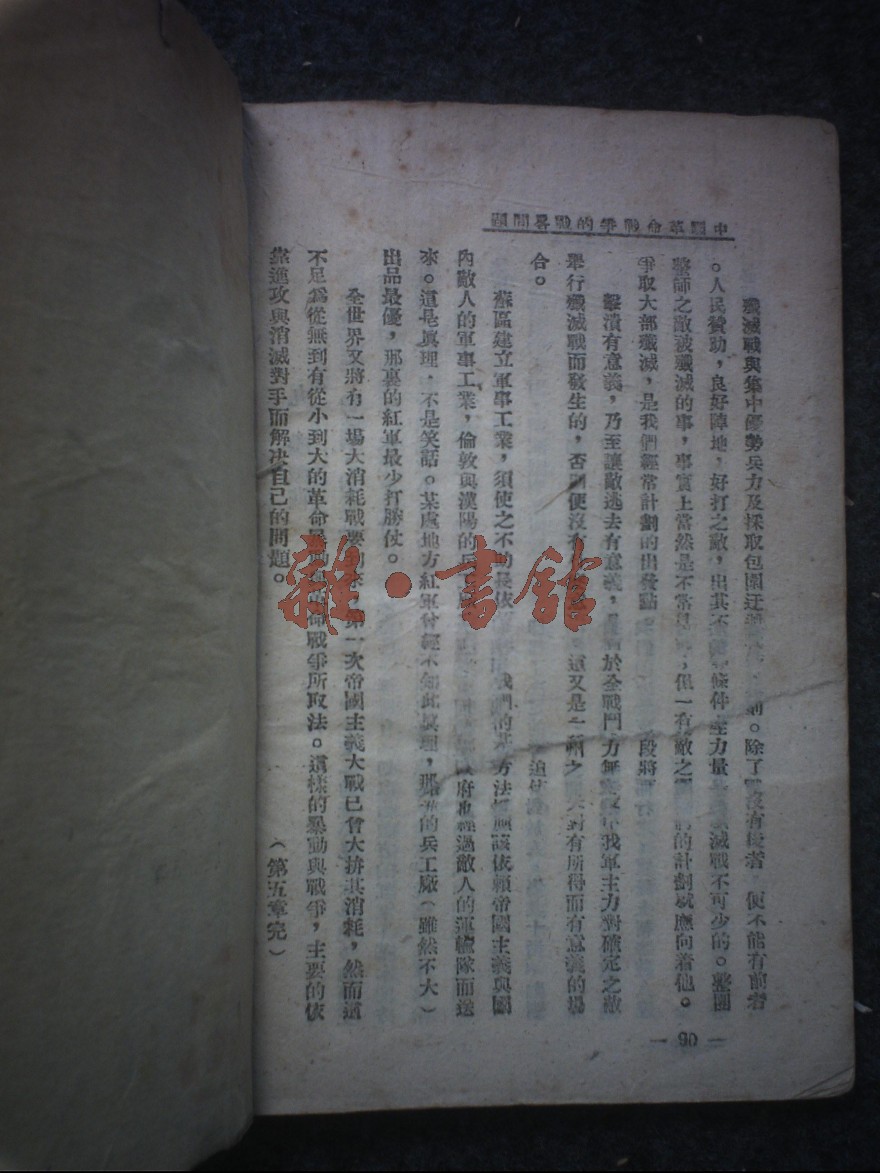 中國革命戰爭的戰畧問題
殲滅戰與集中優勢兵力及採取包圍迂 則。除了 沒有後者 便不能有前者
。人民贊助,良好陣地,好打之敵,出其不 條件 生力量 滅戰不可少的。整團
整師之敵被殲滅的事,事實上當然是不常 ,但一有敵之 的計劃就應向着他。
爭取大部殲滅,是我們經常計劃的出發點 段將
擊潰有意義,乃至讓敵逃去有意義, 於全戰鬥 力 我軍主力對確定之敵
舉行殲滅戰而發生的,否則便沒有 這又是 之 對有所得而有意義的場
合。
蘇區建立軍事工業,須使之不 長依 我們的 方法 應該依賴帝國主義與國
內敵人的軍事工業,倫敦與漢陽的兵 府也經過敵人的運輸隊而送
來。這是真理,不是笑話。某處地方紅軍曾經不知此真理,那 的兵工廠(雖然不大)
出品最優,那裏的紅軍最少打勝仗。
全世界又將有一場大消耗戰要到來,第一次帝國主義大戰已曾大拚其消耗,然而這
不足爲從無到有從小到大的革命暴動 革命戰爭所取法。這樣的暴動與戰爭,主要的依
靠進攻與消滅對手而解決自己的問題。
(第五章完)
— 90 —
雜·書館